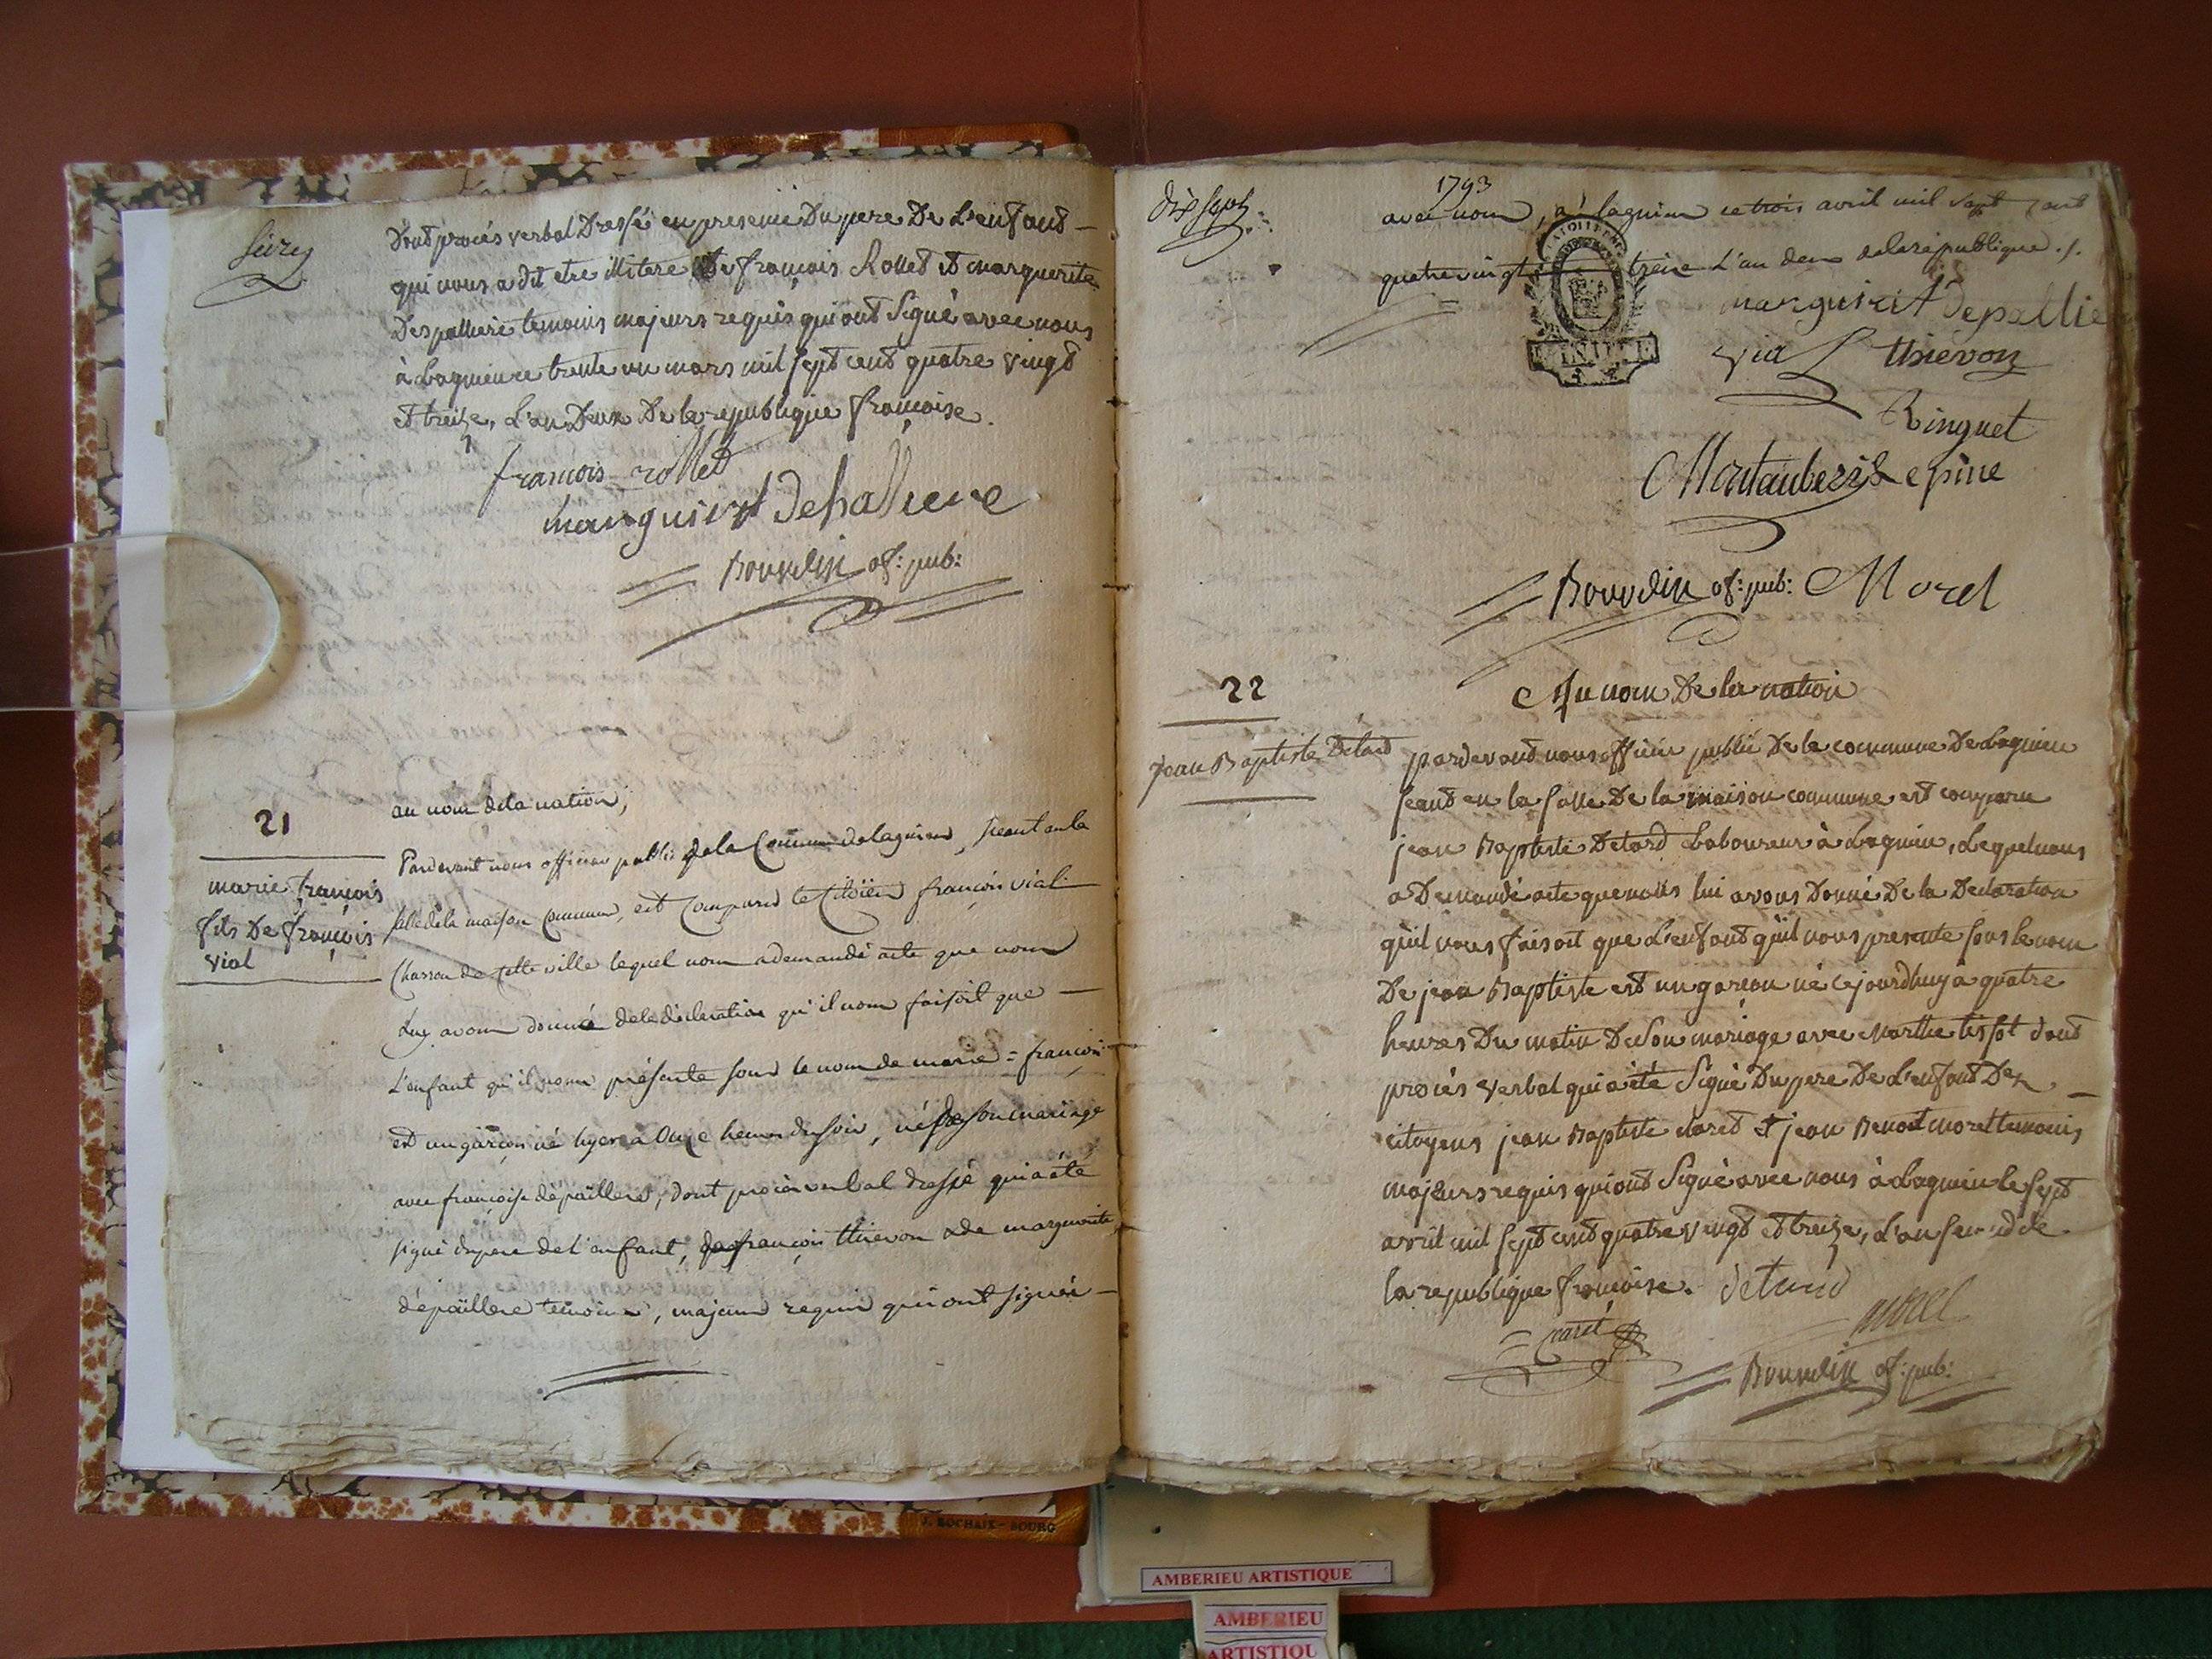 Dont procés verbal Dressé en presence Du pere De L'enfant
qui nous a dit etre illitere De françois Rollet et marguerite
Despalliere temoins majeurs requis qui ont Signé avec nous
à Lagnieu ce trente un mars mil sept cent quatre vingt
et treize, L'an Deux De la republique françoise.
françois rollet
marguirit depalliere
Bourdin of: pub:
21
marie françois
fils De françois
vial
au nom de la nation,
Pardevant nous officier public de la Commune de lagnieu, seant en la
salle de la maison Commune, est Comparu le Citoïen françois vial
de cette ville lequel nous a demandé acte que nous
luy avons donné de la déclaration qu'il nous faisoit que
L'enfant qu'il nous présente sous le nom de marie = françois
est un garçon né hyer a Onze heures du soir, né de son mariage
avec françoise dépaillere, dont procès verbal dressé qui a été
signé du pere de l'enfant, de françois thievon & de marguerite
dépaillere temoins, majeurs requis qui ont signés
Dix sept
1793
avec nous, a lagnieu ce trois avril mil sept cent
quatre vingt treize L'an deux de la republique ./.
marguirit depallie
vial thievon
Ringuet
Montauberis epine
Bourdin of: pub: Morel
22
Jean Baptiste Détard
Au nom De la nation
pardevant nous officier public De la commune De Lagnieu
seant en la salle De la maison commune est comparu
jean Baptiste Detard Laboureur à Lagnieu, Lequel nous
a Demandé acte que nous lui avons Donné De la Declaration
qu'il nous faisoit que L'enfant qu'il nous presente sous le nom
De jean Baptiste est un garcon né cejourdhuy à quatre
heures Du matin De Son mariage avec Marthe tissot dont
procés verbal qui a été Signé Du pere De L'enfant Des
citoyens jean Baptiste claret et jean Benoit morel temoins
majeurs requis qui ont Signé avec nous à Lagnieu le sept
avril mil sept cent quatre vingt et treize, L'an second de
la republique françoise. detard
claret
morel
Bourdin of: pub:
J. ROCHAIX - BOURG
AMBERIEU ARTISTIQUE
AMBERIEU
ARTISTIQU